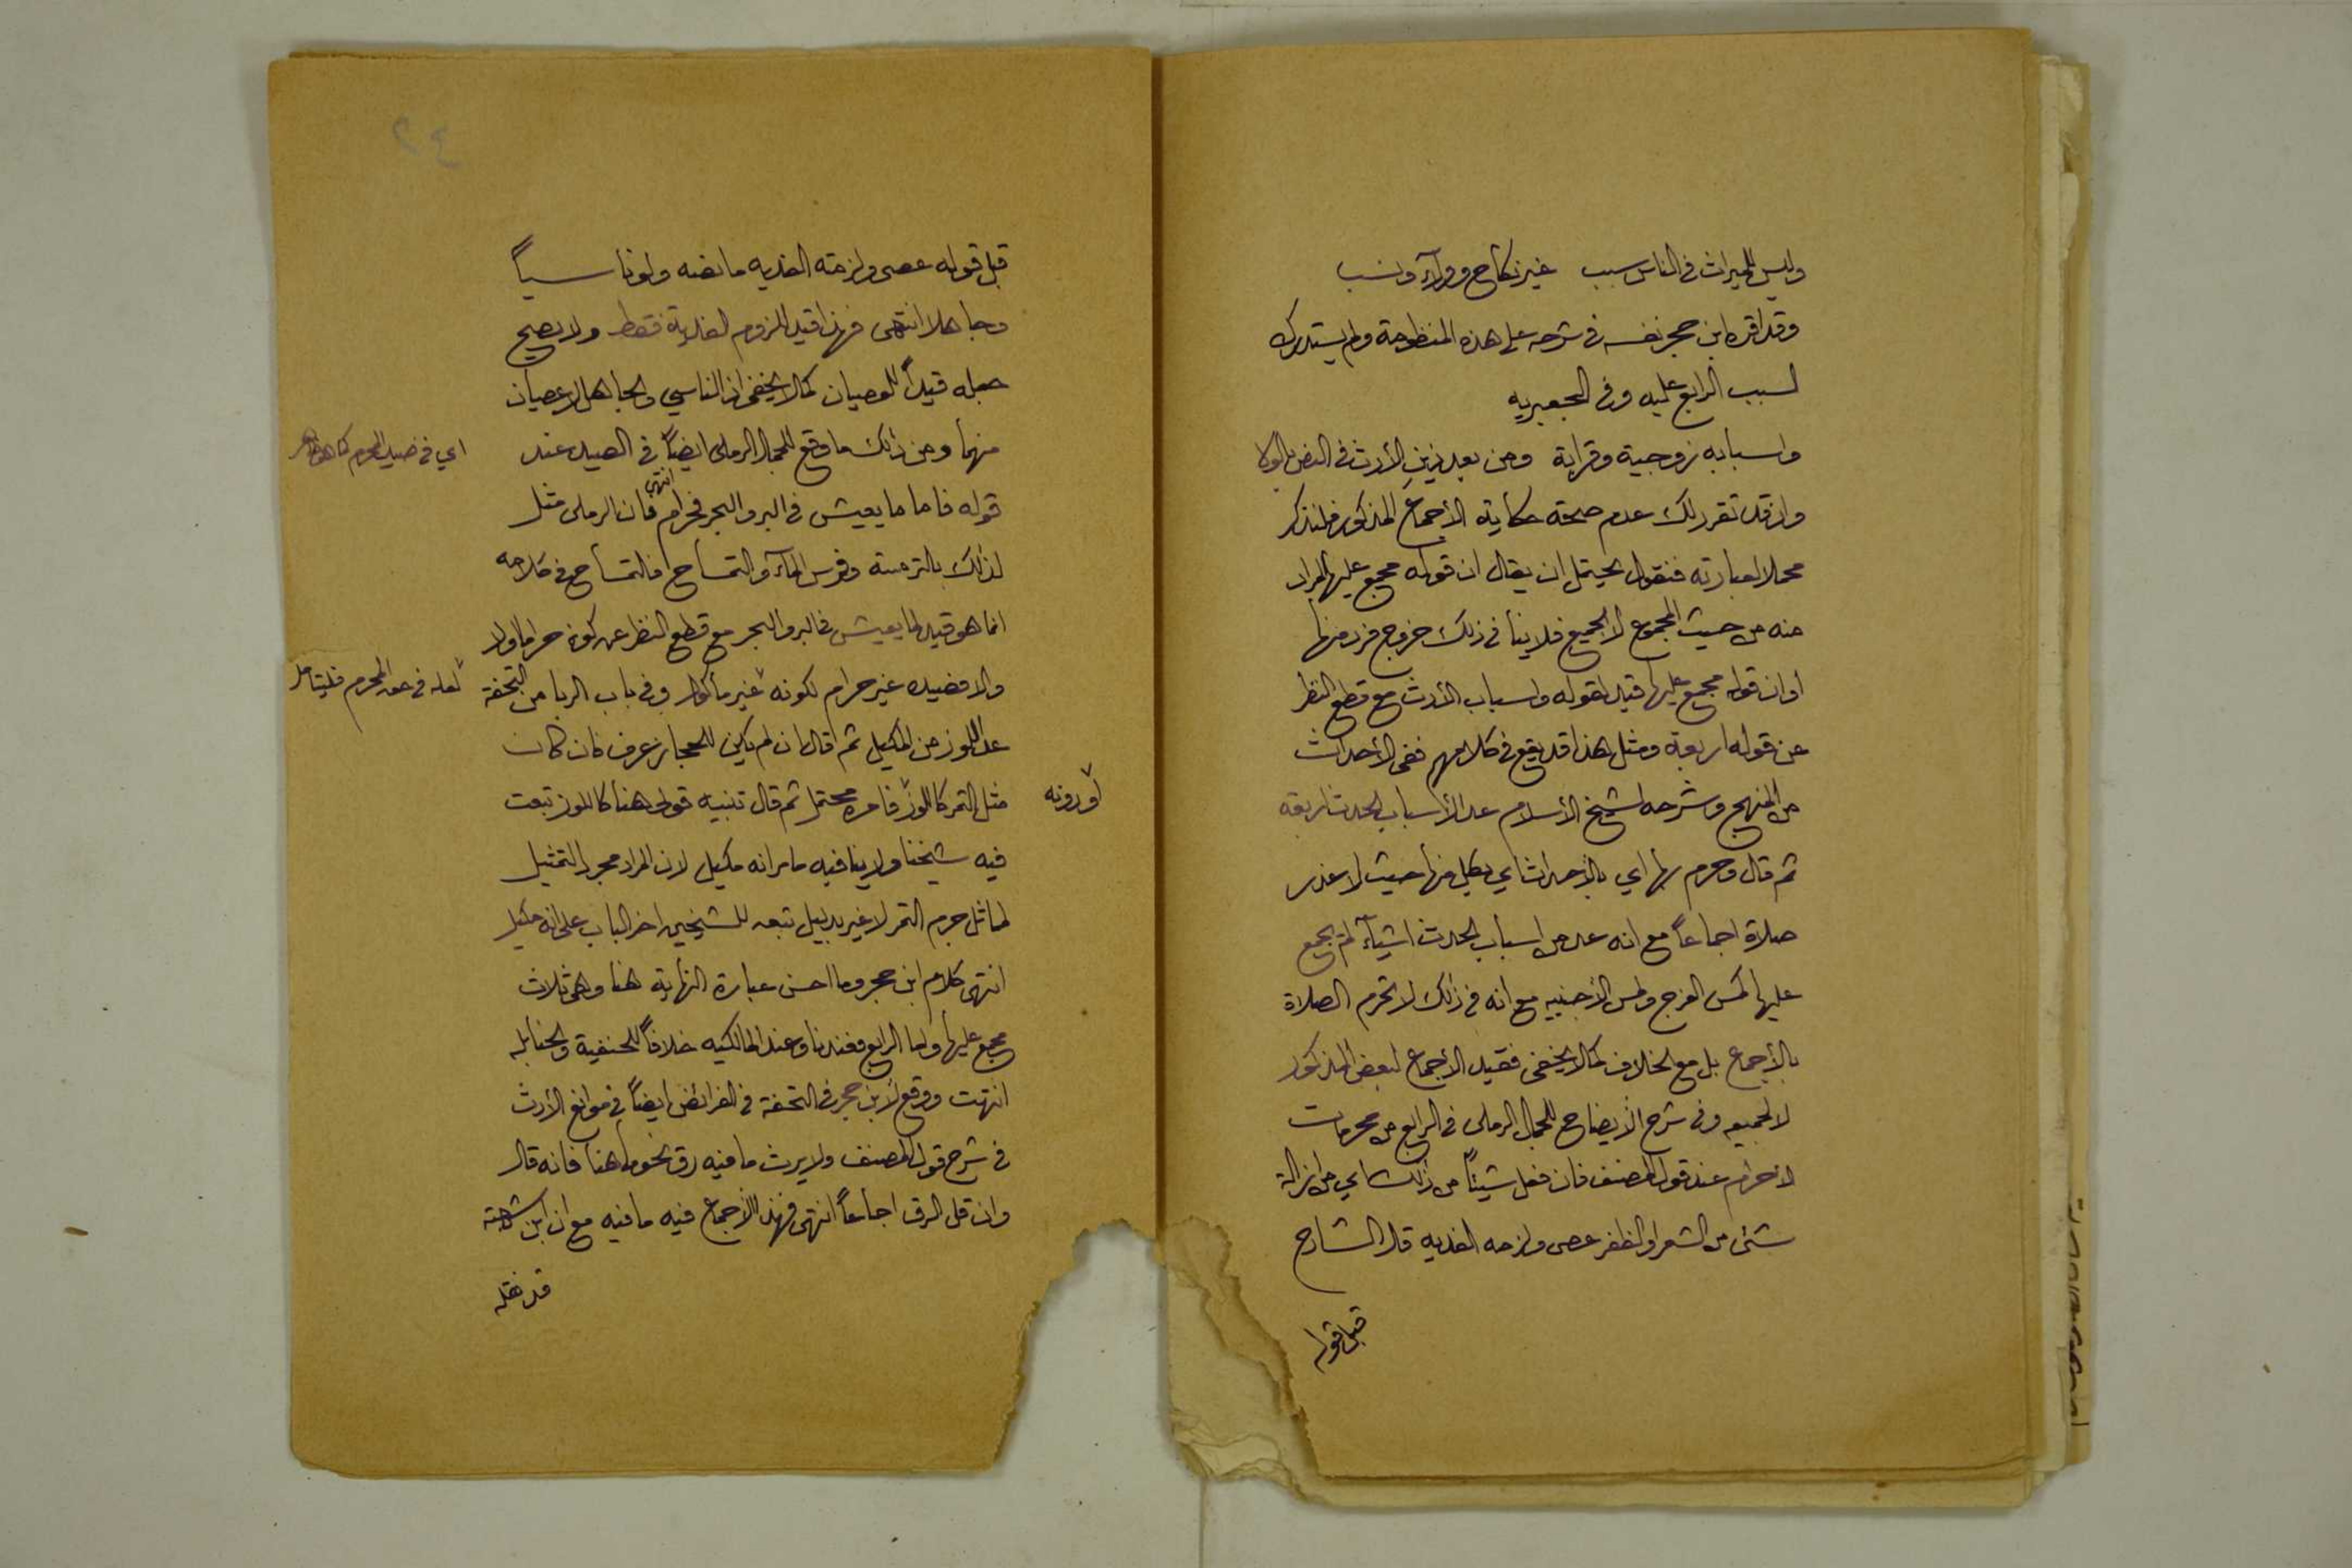 وليس للميراث في الناس سبب غير نكاح وولاء ونسب
وقد اقره ابن حجر نفسه في شرحه على هذه المنظومة ولم يستدرك
لسبب الرابع عليه وفي الجعبريه
واسبابه زوجية وقرابة ومن بعد ذين الأرث في النص بالولا
واذ قد تقرر لك عدم صحة حكاية الأجماع المذكور فلنذكر
محملا لعبارته فنقول يحتمل ان يقال ان قوله مجمع عليها المراد
منه من حيث المجموع لا الجميع فلا ينافي ذلك خروج فرد منها
او ان قوله مجمع عليها قيد لقوله واسباب الأرث مع قطع النظر
عن قوله اربعة ومثل هذا قد يقع في كلامهم ففي الأحداث
من المنهج وشرحه لشيخ الأسلام عد الأسباب الحدث اربعه
ثم قال وحرم بها اي بالأحداث اي بكل منها حيث لا عذر
صلاة اجماعاً مع انه عد من اسباب الحدث اشيآء لم يجمع
عليها كمس الفرج ولمس الأجنبيه مع انه في ذلك لا تحرم الصلاة
بالأجماع بل مع الخلاف كما لا يخفى فقيد الأجماع لبعض المذكور
لا لجميعه وفي شرح الأيضاح للجمال الرملي في الرابع من محرمات
لاحرام عند قول المصنف فان فعل شيئاً من ذلك اي من ازالة
شئ من الشعر او الظفر عصى ولزمه الفديه قال الشارح
قبل قوله
٢٤
قبل قوله عصى ولزمته الفديه ما نصه ولو ناسياً
وجاهلا انتهى فهذا قيد للزوم لفدية فقط ولا يصح
جعله قيداً للعصيان كما لا يخفى اذ الناسي والجاهل لا عصيان
منهما ومن ذلك ما وقع للجمال الرملي ايضاً في الصيد عند
اي في صيد المحرم كما هو ظاهر
قوله فاما ما يعيش في البر والبحر فحرام انتهى فان الرملي مثل
لذلك بالترسة وفرس المآء والتمساح فالتمساح في كلامه
انما هو قيد لما يعيش في البر والبحر مع قطع النظر عن كونه حراما اولا
والا فصيده غير حرام لكونه غير مأكول وفي باب الربا من التحفة
لعله في حق المحرم فليتامل
عد اللوز من المكيل ثم قال ان لم يكن للحجاز عرف فان كان
مثل التمر كاللوز فامره محتمل ثم قال تنبيه قولي هنا كاللوز تبعت
او دونه
فيه شيخنا ولا ينافيه ما مر انه مكيل لان المراد مجرد التمثيل
لما ثل جرم التمر لا غير بدليل تبعه للشيخين اخر الباب على انه مكيل
انتهى كلام ابن حجر وما احسن عبارة النهاية هنا وهي ثلاث
مجمع عليها واما الرابع فعندنا وعند المالكيه خلافاً للحنفية والحنابلة
انتهت ووقع لأبن حجر في التحفة في الفرائض ايضاً في موانع الأرث
في شرح قول المصنف ولا يرث ما فيه رق نحو ما هنا فانه قال
وان قل الرق اجماعاً انتهى فهذا الأجماع فيه ما فيه مع ان ابن شهبة
قد نقله